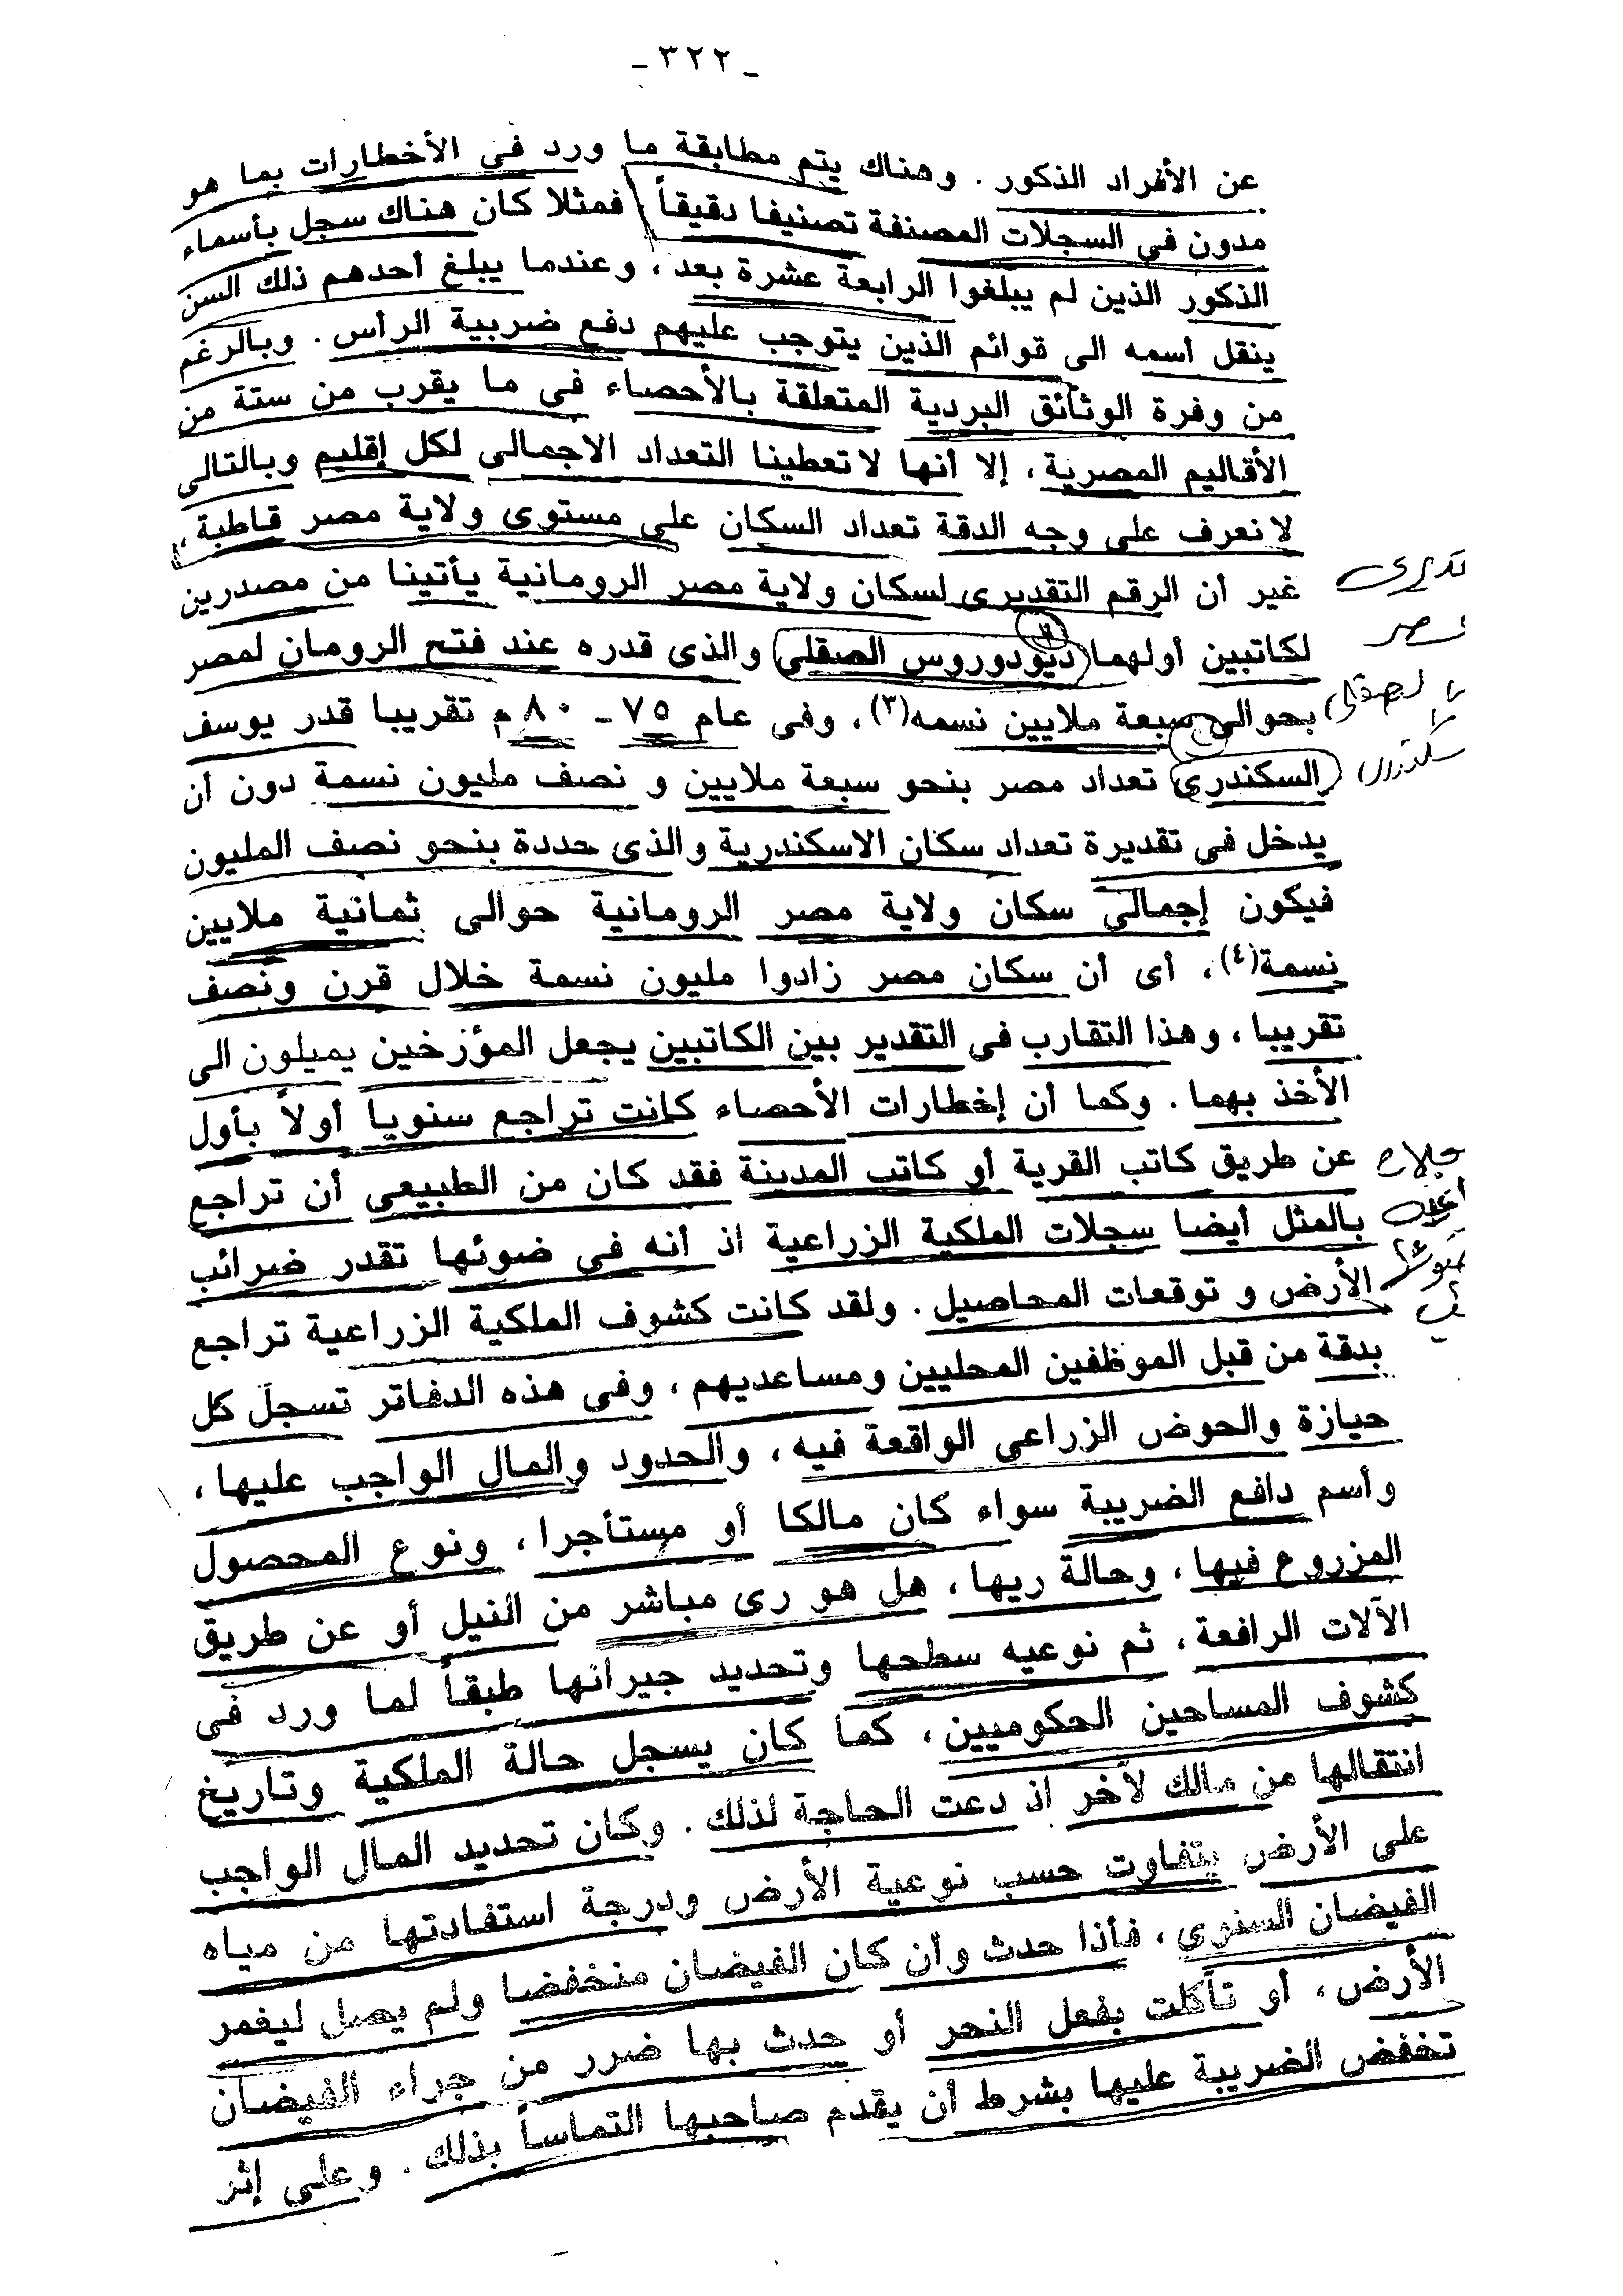 ـ ٣٢٢ ـ
عن الأفراد الذكور . وهناك يتم مطابقة ما ورد فى الأخطارات بما هو
مدون فى السجلات المصنفة تصنيفا دقيقاً فمثلا كان هناك سجل بأسماء
الذكور الذين لم يبلغوا الرابعة عشرة بعد ، وعندما يبلغ أحدهم ذلك السن
ينقل أسمه الى قوائم الذين يتوجب عليهم دفع ضريبة الرأس . وبالرغم
من وفرة الوثائق البردية المتعلقة بالأحصاء فى ما يقرب من ستة من
الأقاليم المصرية ، إلا أنها لا تعطينا التعداد الاجمالى لكل إقليم وبالتالى
لا نعرف على وجه الدقة تعداد السكان على مستوى ولاية مصر قاطبة ،
غير أن الرقم التقديرى لسكان ولاية مصر الرومانية يأتينا من مصدرين
لكاتبين أولهما ديودوروس الصقلى والذى قدره عند فتح الرومان لمصر
بحوالى سبعة ملايين نسمه(٣) ، وفى عام ٧٥ ـ ٨٠ م تقريبا قدر يوسف
السكندرى تعداد مصر بنحو سبعة ملايين و نصف مليون نسمة دون أن
يدخل فى تقديرة تعداد سكان الاسكندرية والذى حددة بنحو نصف المليون
فيكون إجمالى سكان ولاية مصر الرومانية حوالى ثمانية ملايين
نسمة(٤) ، أى أن سكان مصر زادوا مليون نسمة خلال قرن ونصف
تقريبا ، وهذا التقارب فى التقدير بين الكاتبين يجعل المؤرخين يميلون الى
الأخذ بهما . وكما أن إخطارات الأحصاء كانت تراجع سنويا أولاً بأول
عن طريق كاتب القرية أو كاتب المدينة فقد كان من الطبيعى أن تراجع
بالمثل أيضا سجلات الملكية الزراعية اذ أنه فى ضوئها تقدر ضرائب
الأرض و توقعات المحاصيل . ولقد كانت كشوف الملكية الزراعية تراجع
بدقة من قبل الموظفين المحليين ومساعديهم ، وفى هذه الدفاتر تسجل كل
حيازة والحوض الزراعى الواقعة فيه ، والحدود والمال الواجب عليها ،
وأسم دافع الضريبة سواء كان مالكا أو مستأجرا ، ونوع المحصول
المزروع فيها ، وحالة ريها ، هل هو رى مباشر من النيل أو عن طريق
الآلات الرافعة ، ثم نوعيه سطحها وتحديد جيرانها طبقاً لما ورد فى
كشوف المساحين الحكوميين ، كما كان يسجل حالة الملكية وتاريخ
انتقالها من مالك لآخر اذ دعت الحاجة لذلك . وكان تحديد المال الواجب
على الأرض يتفاوت حسب نوعية الأرض ودرجة استفادتها من مياه
الفيضان السنوى ، فأذا حدث وأن كان الفيضان منخفضا ولم يصل ليغمر
الأرض ، أو تآكلت بفعل النحر أو حدث بها ضرر من جراء الفيضان
تخفض الضريبة عليها بشرط أن يقدم صاحبها التماساً بذلك . وعلى إثر